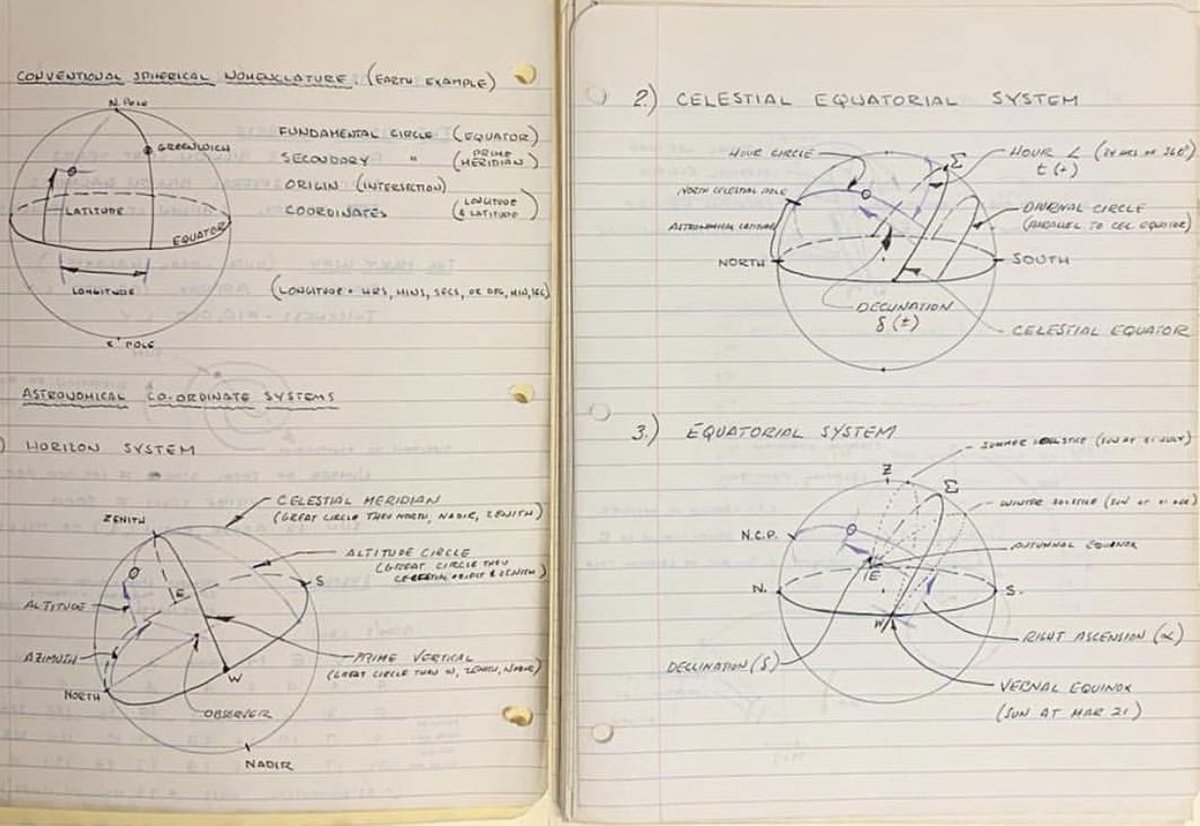 CONVENTIONAL SPHERICAL NOMENCLATURE. (EARTH EXAMPLE)
N. POLE
GREENWICH
LATITUDE
EQUATOR
LONGITUDE
POLE
FUNDAMENTAL CIRCLE (EQUATOR)
SECONDARY " (PRIME MERIDIAN)
ORIGIN (INTERSECTION)
COORDINATES (LONGITUDE & LATITUDE)
(LONGITUDE = HRS, MINS, SECS, OR DEG, MIN, SEC)
ASTRONOMICAL CO-ORDINATE SYSTEMS
) HORIZON SYSTEM
ZENITH
CELESTIAL MERIDIAN
(GREAT CIRCLE THRU NORTH, NADIR, ZENITH)
ALTITUDE CIRCLE
(GREAT CIRCLE THRU
CELESTIAL OBJECT & ZENITH)
S
E
ALTITUDE
AZIMUTH
NORTH
W
PRIME VERTICAL
(GREAT CIRCLE THRU W, ZENITH, NADIR)
OBSERVER
NADIR
2.) CELESTIAL EQUATORIAL SYSTEM
HOUR CIRCLE
Σ
HOUR ∠ (24 HRS OR 360°)
t (+)
NORTH CELESTIAL POLE
ASTRONOMICAL LATITUDE
DIURNAL CIRCLE
(PARALLEL TO CEL EQUATOR)
NORTH
SOUTH
DECLINATION
δ (±)
CELESTIAL EQUATOR
3.) EQUATORIAL SYSTEM
SUMMER SOLSTICE (SUN AT 21 JULY)
Z
Σ
WINTER SOLSTICE (SUN AT 21 DEC)
N.C.P.
AUTUMNAL EQUINOX
E
N.
S.
W
RIGHT ASCENSION (α)
DECLINATION (δ)
VERNAL EQUINOX
(SUN AT MAR 21)